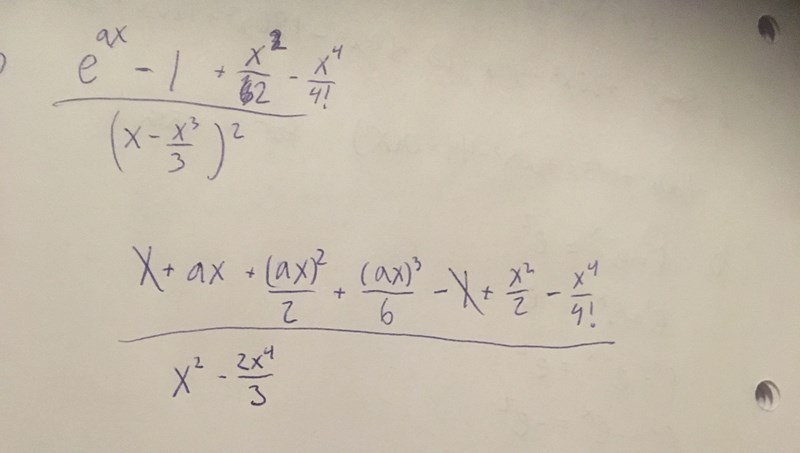 e^{ax} - 1 + \frac{x^2}{2} - \frac{x^4}{4!}
(x - \frac{x^3}{3})^2
1 + ax + \frac{(ax)^2}{2} + \frac{(ax)^3}{6} - 1 + \frac{x^2}{2} - \frac{x^4}{4!}
x^2 - \frac{2x^4}{3}